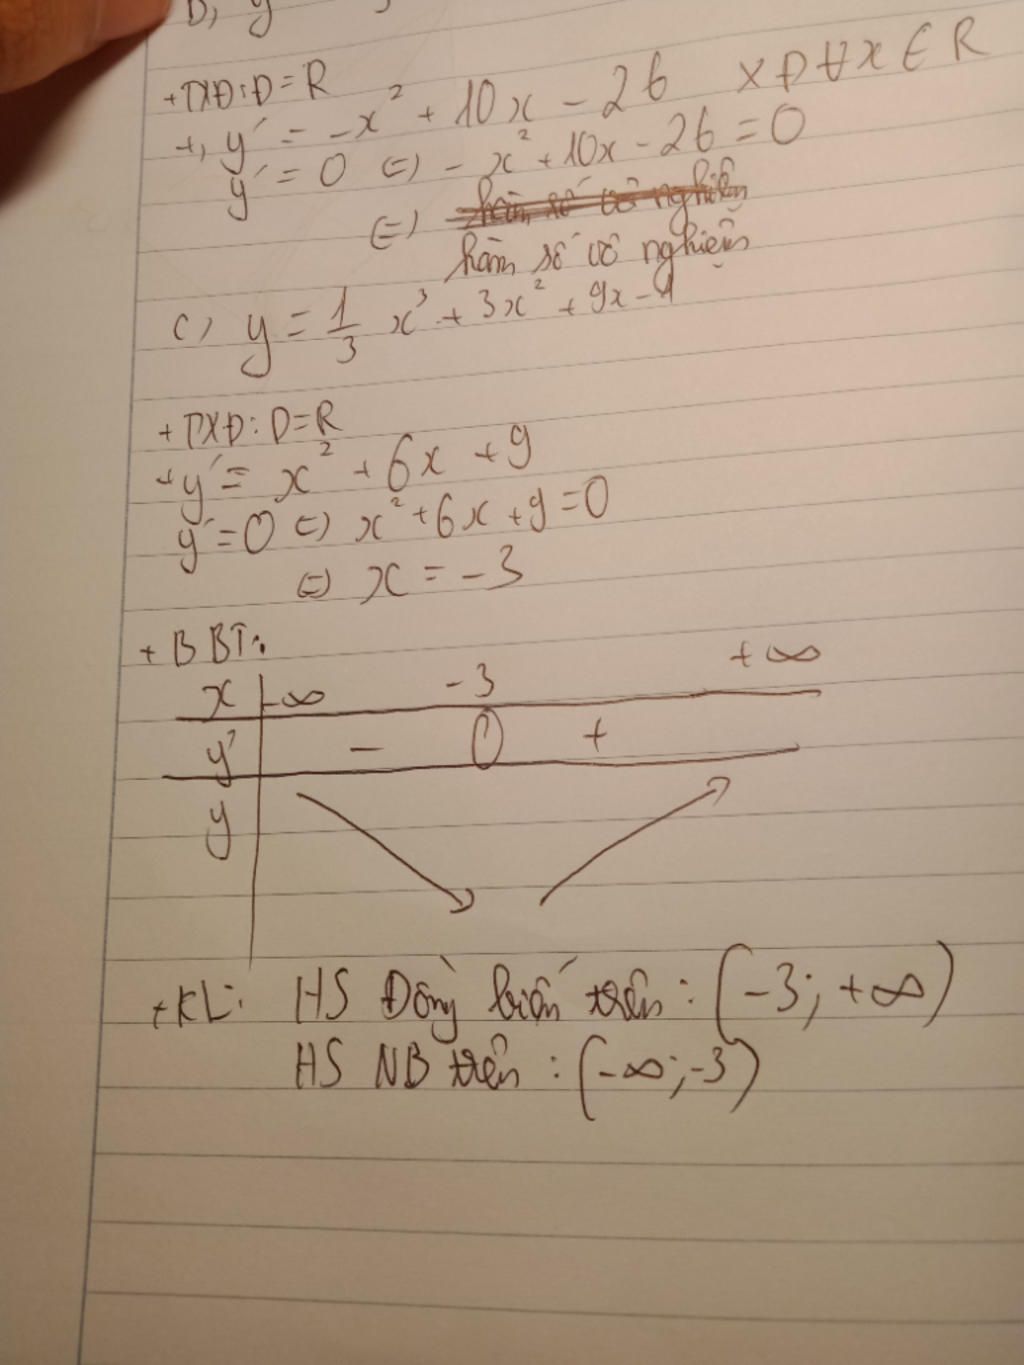 b, y
+TXĐ: D=R
+, y' = -x² + 10x - 26 XĐ ∀x ∈ R
y' = 0 (=) - x² + 10x - 26 = 0
(=) hàm số vô nghiệm
hàm số vô nghiệm
c, y = 1/3 x³ + 3x² + 9x - 1
+ TXĐ: D=R
+ y' = x² + 6x + 9
y' = 0 (=) x² + 6x + 9 = 0
(=) x = -3
+ BBT:
x -∞ -3 +∞
y' - 0 +
y
+KL: HS Đồng biến trên: (-3; +∞)
HS NB trên: (-∞; -3)